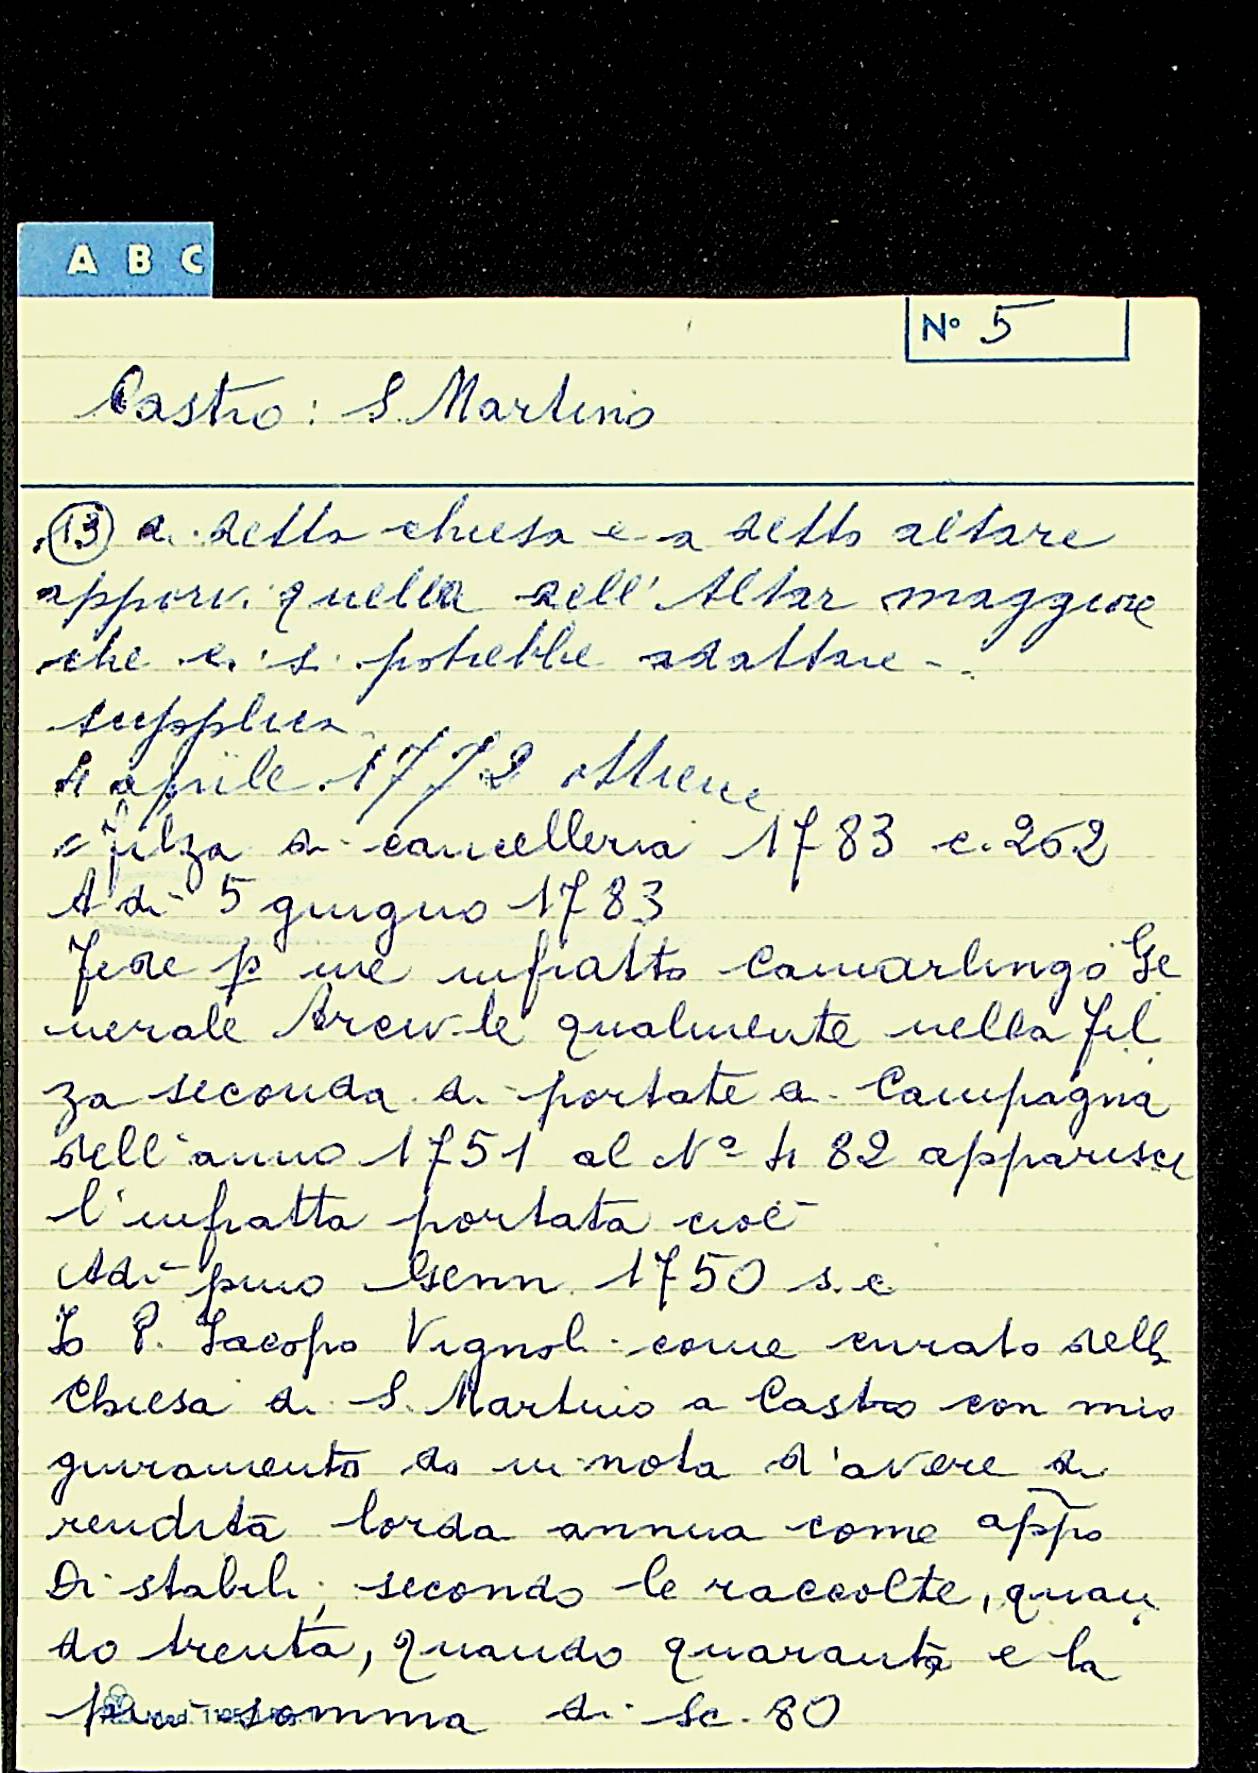 A B C
Nº 5
Castro: S. Martino
13 a. detta chiesa e a detto altare
apporv. quella dell'Altar maggiore
che ci si potrebbe adattare -.
supplica.
4 aprile 1772 ottiene
= Filza di cancelleria 1783 c. 262
A dì 5 giugno 1783
Fede p me infratto Camarlingo Ge
nerale Arciv.le qualmente nella Fil
za seconda di portate di Campagna
dell'anno 1751 al Nº 482 apparisce
l'infratta portata cioè
Adì pmo Genn. 1750 s.c
Io P. Iacopo Vignoli come curato della
Chiesa di S. Martino a Castro con mio
giuramento do in nota d'avere di
rendita lorda annua come appo
Di stabili, secondo le raccolte, quan
do trenta, quando quaranta e la
più somma di Sc. 80